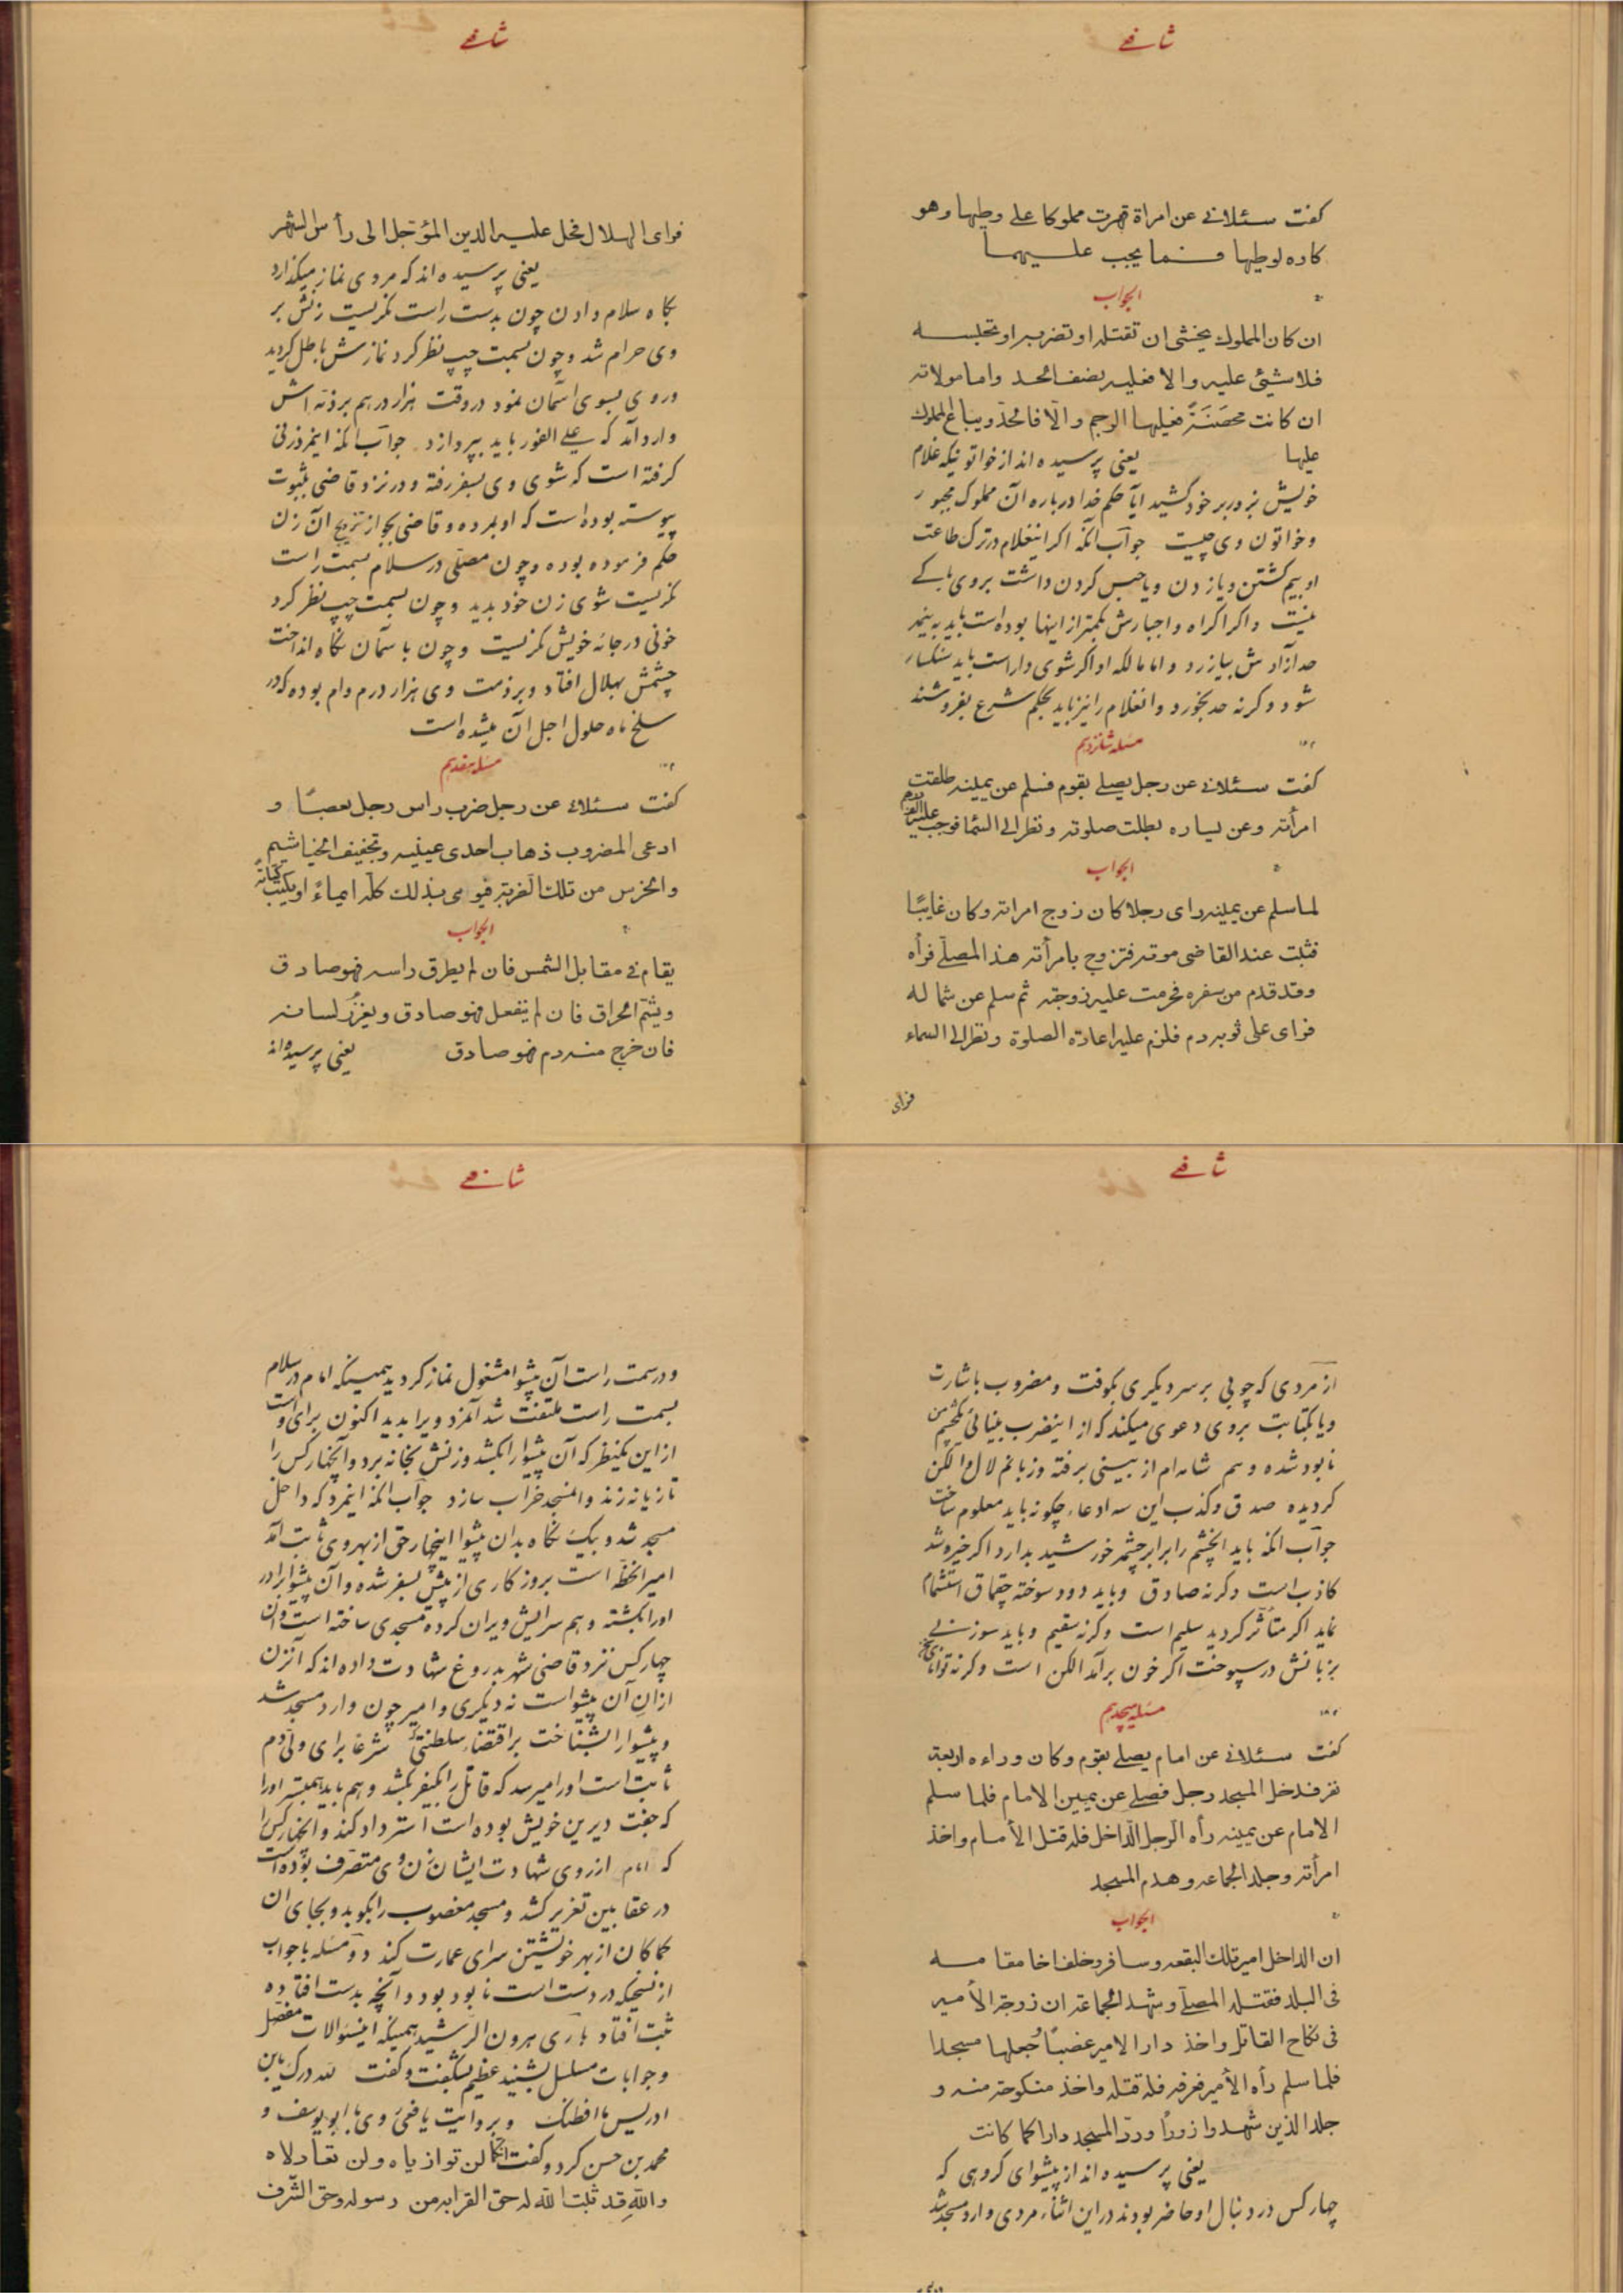 شافعی
گفت سئلانی عن امراة قهرت مملوکا علی وطیها وهو
کاره لوطیها فما یجب علیهما
الجواب
ان کان المملوك یخشی ان تقتله او تضربه او تحبسه
فلا شیئ علیه والا فعلیه نصف الحد واما مولاته
ان کانت محصَنَةً فعلیها الرجم والّا فالحدّ ویباع المملوك
علیها یعنی پرسیده اند از خواتونیکه غلام
خویش بزور بر خود کشید آیا حکم خدا درباره آن مملوک مجبور
و خواتون وی چیست جواب آنکه اگر اینغلام در ترک طاعت
او بیم کشتن و یا زدن و یا حبس کردن داشت بر وی باکے
نیست و اگر اکراه و اجبارش بکمتر از اینها بوده است باید به نیمه
حد آزادش بیازرد و اما مالکه او اگر شوی دار است باید سنکسار
شود وگرنه حد بخورد و انغلام را نیز باید بحکم شرع بفروشند
مسئله شانزدهم
گفت سئلانی عن رجل یصلے بقوم فسلم عن یمینه طلقت
امرأته وعن یساره بطلت صلوته ونظر الی السّما فوجب علیه الف درهم
الجواب
لما سلم عن یمینه رای رجلا کان زوج امراته وکان غایبًا
فثبت عند القاضی موته فتزوج بامرأته هذا المصلّے فرأه
وقد قدم من سفره فحرمت علیه زوجته ثم سلم عن شماله
فرای علی ثوبه دم فلزم علیه اعادة الصلوة ونظر الی السماء
فرای
شافعی
فرای الهلال فحل علیه الدین المؤجّل الی رأس الشهر
یعنی پرسیده اند که مردی نماز میگذارد
بگاه سلام دادن چون بدست راست نگریست زنش بر
وی حرام شد و چون بسمت چپ نظر کرد نمازش باطل گردید
و روی بسوی اسمان نمود در وقت هزار درهم بر ذمّه اش
وارد آمد که علے الفور باید بپردازد جواب آنکه اینمرد زنی
گرفته است که شوی وی بسفر رفته و در نزد قاضی بثبوت
پیوسته بوده است که او بمرده و قاضی بجواز تزویج آن زن
حکم فرموده بوده و چون مصلّی در سلام بسمت راست
نگریست شوی زن خود بدید و چون بسمت چپ نظر کرد
خونی در جامه خویش نگریست و چون باسمان نگاه انداخت
چشمش بهلال افتاد و بر ذمت وی هزار درم وام بوده که در
سلخ ماه حلول اجل آن میشده است
مسئله هفدهم
گفت سئلانی عن رجل ضرب راس رجل بعصًا و
ادعی المضروب ذهاب احدی عینیه وتجفیف الخیاشیم
والخرس من تلك الضربة فیومی بذلك کله ایماءً او یکتب کتابةً
الجواب
یقام فی مقابل الشمس فان لم یطرق راسه فهو صادق
ویشم الحراق فان لم ینفعل فهو صادق ویغرز لسانه
فان خرج منه دم فهو صادق یعنی پرسیده اند
شافعی
از مردی که چوبی بر سر دیگری بکوفت و مضروب باشارت
و یا بکتابت بر وی دعوی میکند که از اینضرب بینائی یکچشم من
نابود شده و هم شامه ام از بینی برفته و زبانم لال و الکن
گردیده صدق و کذب این سه ادعاء چگونه باید معلوم ساخت
جواب انکه باید انچشم را برابر چشمه خورشید بدارد اگر خیره شد
کاذب است وگرنه صادق و باید دود سوخته چقماق استشمام
نماید اگر متأثر گردید سلیم است وگرنه سقیم و باید سوزنی
بزبانش درسپوخت اگر خون برآمد الکن است وگرنه
مسئله هیجدهم
گفت سئلانی عن امام یصلے بقوم وکان وراءه اربعة
نفر فدخل المسجد رجل فصلے عن یمین الامام فلما سلم
الامام عن یمینه رأه الرجل الداخل فله قتل الأمام واخذ
امرأته وجلد الجماعه وهدم المسجد
الجواب
ان الداخل امیر تلك البقعه وسافر وخلف اخا مقامه
فی البلد فقتله المصلّے وشهد الجماعة ان زوجة الأمیر
فی نکاح القاتل واخذ دار الامیر غصبًا وجعلها مسجدا
فلما سلم رأه الأمیر فعرفه فله قتله واخذ منکوحته منه و
جلد الذین شهدوا زورًا وردّ المسجد دارا کما کانت
یعنی پرسیده اند از پیشوای گروهی که
چهار کس در دنبال او حاضر بودند در این اثناء مردی وارد مسجد شد
شافعی
و در سمت راست آن پیشوا مشغول نماز گردید همینکه امام در سلام
بسمت راست ملتفت شد آنمرد ویرا بدید اکنون برای او است
از این یکنظر که آن پیشوا را بکشد و زنش بخانه برد و آنچهار کس را
تازیانه زند و المسجد خراب سازد جواب انکه اینمرد که داخل
مسجد شد و بیک نگاه بدان پیشوا اینچهار حق از بهر وی ثابت آمد
امیر انخطّه است بروزگاری از پیش بسفر شده و آن پیشوا برادر
او را بکشته و هم سرایش ویران کرده مسجدی ساخته است و ان
چهار کس نزد قاضی شهر بدروغ شهادت داده اند که آنزن
از ان آن پیشوا است نه دیگری و امیر چون وارد مسجد شد
و پیشوا را بشناخت بر اقتضاء سلطنتی که شرعا برای ولّی دم
ثابت است او را میرسد که قاتل را بکیفر بکشد و هم باید همسر او را
که جفت دیرین خویش بوده است استرداد کند و انچهار کس را
که امام از روی شهادت ایشان زن وی متصرف بوده است
در عقابین تعزیر کشد و مسجد مغصوب را بکوبد و بجای ان
کما کان از بهر خویشتن سرای عمارت کند دو مسئله با جواب
از نسخیکه در دست است نابود بود و آنچه بدست افتاده
ثبت افتاد باری هرون الرشید همینکه اینسؤالات مفصل
و جوابات مسلسل بشنید عظیم بشگفت و گفت لله درک یابن
ادریس ما افطنک و بروایت یافعی روی بابو یوسف و
محمد بن حسن کرد و گفت انکما لن توازیاه ولن تعادلاه
واللّهِ قد ثبت اللّه له حق القرابه من رسوله وحق الشّرف